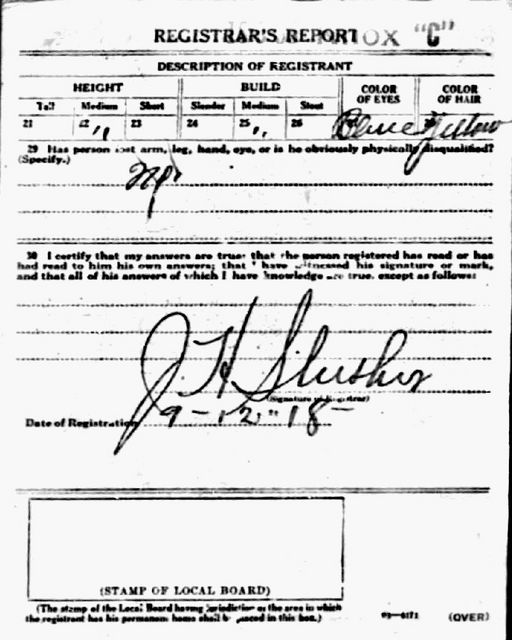 REGISTRAR'S REPORT
OX "C"
DESCRIPTION OF REGISTRANT
HEIGHT BUILD COLOR OF EYES COLOR OF HAIR
Tall Medium Short Slender Medium Stout
21 22 " 23 24 25 " 26 Blue Yellow
29 Has person lost arm, leg, hand, eye, or is he obviously physically disqualified?
(Specify.)
No
30 I certify that my answers are true; that the person registered has read or has
had read to him his own answers; that I have witnessed his signature or mark,
and that all of his answers of which I have knowledge are true, except as follows:
J. H. Slusher
(Signature of Registrar)
Date of Registration 9-12-18-
(STAMP OF LOCAL BOARD)
(The stamp of the Local Board having jurisdiction of the area in which
the registrant has his permanent home shall be placed in this box.)
03-6171 (OVER)